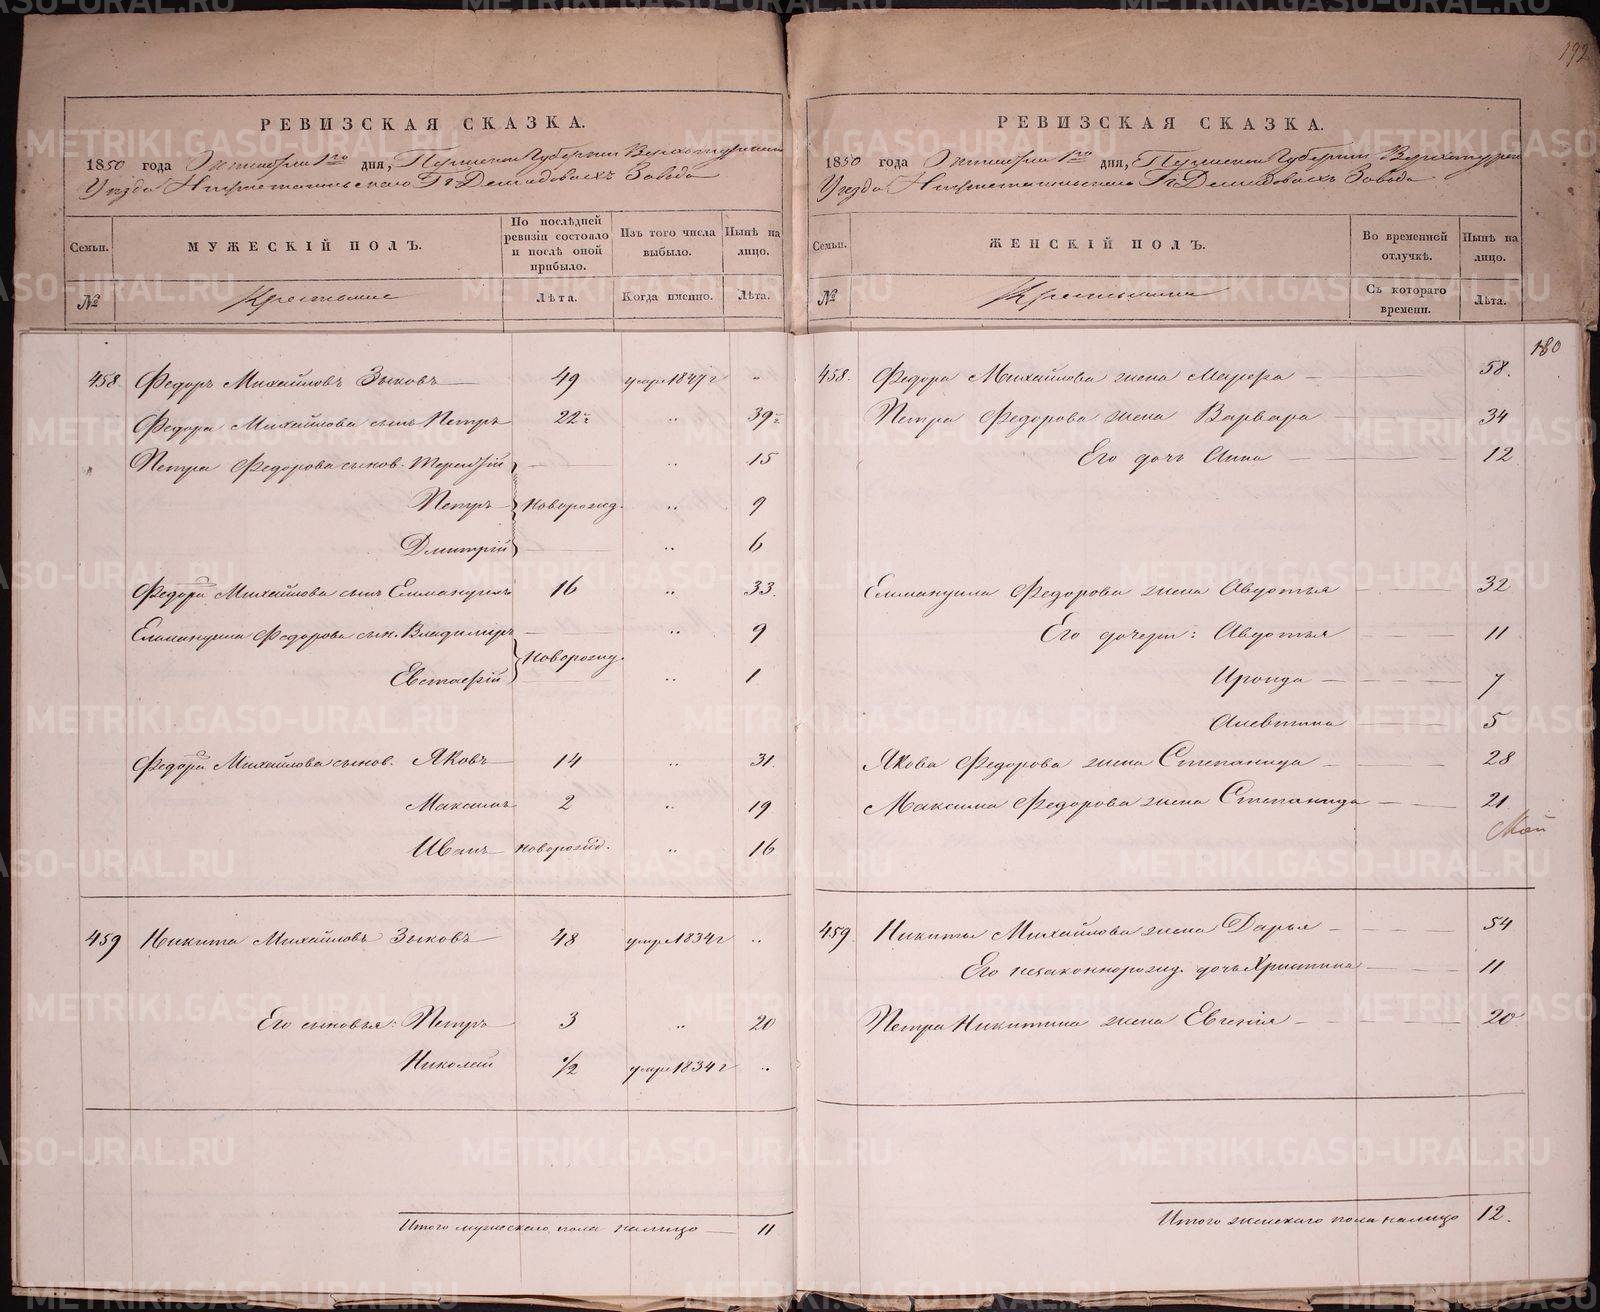 РЕВИЗСКАЯ СКАЗКА.
1850 года Октября 1го дня, Пермской Губернии Верхотурскаго
Уезда Нижнетагильскаго Гг Демидовыхъ Завода
Семьи.
МУЖЕСКІЙ ПОЛЪ.
По послѣдней ревизіи состояло и послѣ оной прибыло.
Изъ того числа выбыло.
Нынѣ на лицо.
№
Крестьяне
Лѣта.
Когда именно.
Лѣта.
458. Федоръ Михайловъ Зыковъ — 49 умре 1847 г „
Федора Михайлова сынъ Петръ 22 „ 39
Петра Федорова сынов. — „ 15
Петръ Новорожд. „ 9
Дмитрій „ 6
Федора Михайлова сынъ Еммануилъ 16 „ 33.
Еммануила Федорова сын. Владиміръ — „ 9
Новорожд.
Евстафій „ 1
Федора Михайлова сынов. Яковъ 14 „ 31.
Максимъ 2 „ 19
Иванъ новорожд. „ 16
459 Никита Михайловъ Зыковъ 48 умре 1834 г „
Его сыновья: Петръ 3 „ 20
Николай 1/2 умре 1834 г „
Итого мужескаго пола налицо — 11
192
РЕВИЗСКАЯ СКАЗКА.
1850 года Октября 1го дня, Пермской Губернии Верхотурск
Уезда Нижнетагильскаго Гг Демидовыхъ Завода
Семьи.
ЖЕНСКІЙ ПОЛЪ.
Во временной отлучкѣ.
Нынѣ на лицо.
№
Крестьянки
Съ котораго времени.
Лѣта.
180
458. Федора Михайлова жена Марфа — 58.
Петра Федорова жена Варвара 34
Его дочь Анна — 12
Еммануила Федорова жена Авдотья — 32
Его дочери: Авдотья — 11
Ироида — 7
Алевтина — 5
Якова Федорова жена Степанида — 28
Максима Федорова жена Степанида — 21
459. Никиты Михайлова жена Дарья — 54
Его незаконнорожд. дочь Христина — 11
Петра Никитина жена Евгенія — 20
Итого женскаго пола налицо 12.
METRIKI.GASO-URAL.RU